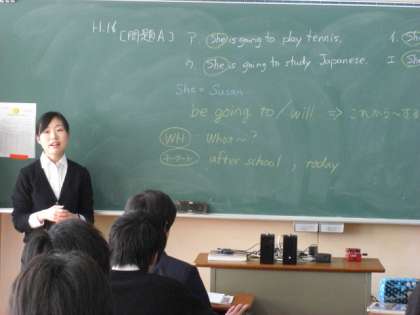 H.16 [問題A] ア. She is going to play tennis.
ウ. She is going to study Japanese.
She = Susan
be going to / will ⇒ これから~する
WH What ~ ?
キーワード after school , today